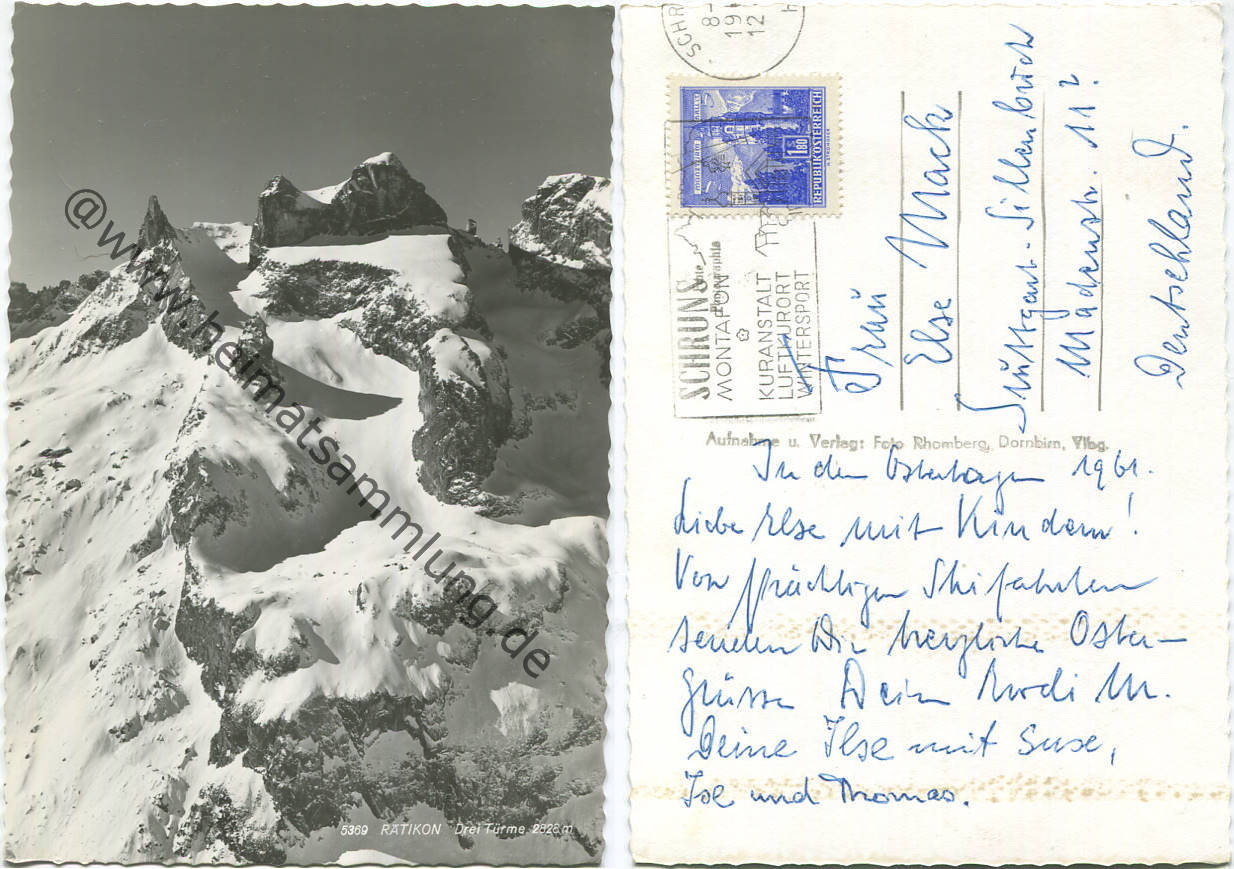 @www.heimatsammlung.de
5369 RÄTIKON Drei Türme 2828 m
SCHR
8-
19
12
1.80
REPUBLIK ÖSTERREICH
SCHRUNS
MONTAFON
KURANSTALT
LUFTKURORT
WINTERSPORT
Frau
Else Mack
Stuttgart-Sillenbuch
11²
Deutschland.
Aufnahme u. Verlag: Foto Rhomberg, Dornbirn, Vlbg.
In den Ostertagen 1961.
Liebe Else mit Kindern!
Von prächtigen Skifahrten
senden Dir herzliche Oster-
grüsse Dein M.
Deine Ilse mit Suse,
und Thomas.